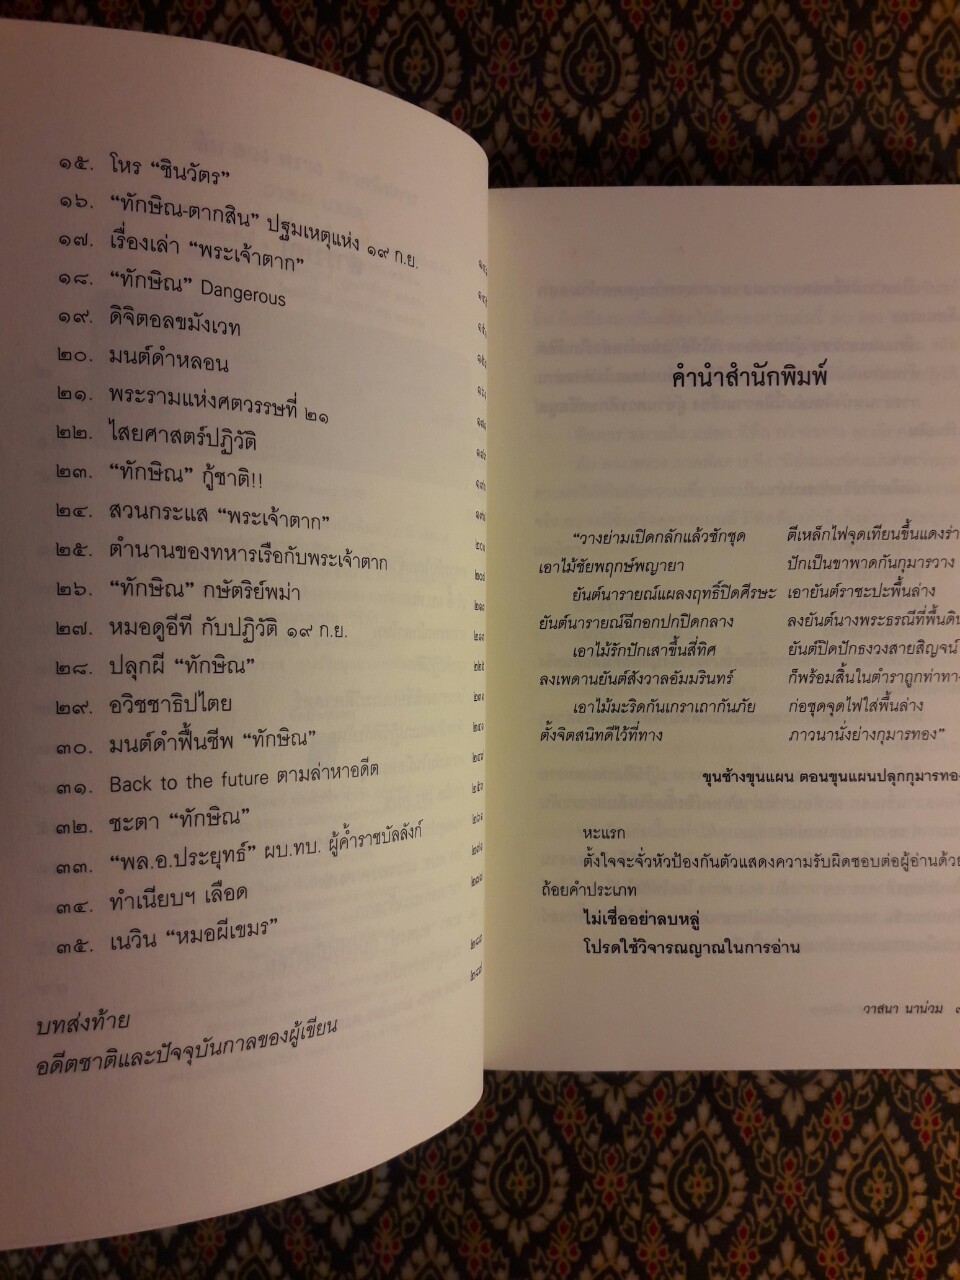 ๑๕. โหร “ชินวัตร”
๑๖. “ทักษิณ-ตากสิน” ปฐมเหตุแห่ง ๑๙ ก.ย.
๑๗. เรื่องเล่า “พระเจ้าตาก”
๑๘. “ทักษิณ” Dangerous
๑๙. ดิจิตอลขมังเวท
๒๐. มนต์ดำหลอน
๒๑. พระรามแห่งศตวรรษที่ ๒๑
๒๒. ไสยศาสตร์ปฏิวัติ
๒๓. “ทักษิณ” กู้ชาติ!!
๒๔. สวนกระแส “พระเจ้าตาก”
๒๕. ตำนานของทหารเรือกับพระเจ้าตาก
๒๖. “ทักษิณ” กษัตริย์พม่า
๒๗. หมอดูอีที กับปฏิวัติ ๑๙ ก.ย.
๒๘. ปลุกผี “ทักษิณ”
๒๙. อวิชชาธิปไตย
๓๐. มนต์ดำฟื้นชีพ “ทักษิณ”
๓๑. Back to the future ตามล่าหาอดีต
๓๒. ชะตา “ทักษิณ”
๓๓. “พล.อ.ประยุทธ์” ผบ.ทบ. ผู้ค้ำราชบัลลังก์
๓๔. ทำเนียบฯ เลือด
๓๕. เนวิน “หมอผีเขมร”
บทส่งท้าย
อดีตชาติและปัจจุบันกาลของผู้เขียน
คำนำสำนักพิมพ์
“วางย่ามเปิดกลักแล้วชักชุด ตีเหล็กไฟจุดเทียนขึ้นแดงร่า
เอาไม้ชัยพฤกษ์พญายา ปักเป็นขาพาดกันกุมารวาง
ยันต์นารายณ์แผลงฤทธิ์ปิดศีรษะ เอายันต์ราชะปะพื้นล่าง
ยันต์นารายณ์ฉีกอกปกปิดกลาง ลงยันต์นางพระธรณีที่พื้นดิน
เอาไม้รักปักเสาขึ้นสี่ทิศ ยันต์ปิดปักธงวงสายสิญจน์
ลงเพดานยันต์สังวาลอัมมรินทร์ ก็พร้อมสิ้นในตำราถูกท่าทาง
เอาไม้มะริดกันเกราเถากันภัย ก่อชุดจุดไฟใส่พื้นล่าง
ตั้งจิตสนิทดีไว้ที่ทาง ภาวนานั่งย่างกุมารทอง”
ขุนช้างขุนแผน ตอนขุนแผนปลุกกุมารทอง
หะแรก
ตั้งใจจะจั่วหัวป้องกันตัวแสดงความรับผิดชอบต่อผู้อ่านด้วย
ถ้อยคำประเภท
ไม่เชื่ออย่าลบหลู่
โปรดใช้วิจารณญาณในการอ่าน
วาสนา นาน่วม